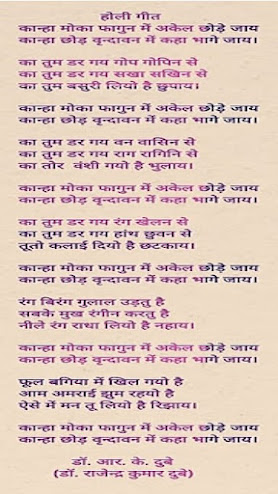 होली गीत
कान्हा मोका फागुन में अकेल छोड़े जाय
कान्हा छोड़ वृन्दावन में कहा भागे जाय।
का तुम डर गय गोप गोपिन से
का तुम डर गय सखा सखिन से
का तुम बसुरी लियो है छुपाय।
कान्हा मोका फागुन में अकेल छोड़े जाय
कान्हा छोड़ वृन्दावन में कहा भागे जाय।
का तुम डर गय वन वासिन से
का तुम डर गय राग रागिनि से
का तोर वंशी गयो है भुलाय।
कान्हा मोका फागुन में अकेल छोड़े जाय
कान्हा छोड़ वृन्दावन में कहा भागे जाय।
का तुम डर गय रंग खेलन से
का तुम डर गय हांथ छुवन से
तूतो कलाई दियो है छटकाय।
कान्हा मोका फागुन में अकेल छोड़े जाय
कान्हा छोड़ वृन्दावन में कहा भागे जाय।
रंग बिरंग गुलाल उड़तु है
सबके मुख रंगीन करतु है
नीले रंग राधा लियो है नहाय।
कान्हा मोका फागुन में अकेल छोड़े जाय
कान्हा छोड़ वृन्दावन में कहा भागे जाय।
फूल बगिया में खिल गयो है
आम अमराई झुम रहयो है
ऐसे में मन तू लियो है रिझाय।
कान्हा मोका फागुन में अकेल छोड़े जाय
कान्हा छोड़ वृन्दावन में कहा भागे जाय।
डॉ. आर. के. दुबे
(डॉ. राजेन्द्र कुमार दुबे)